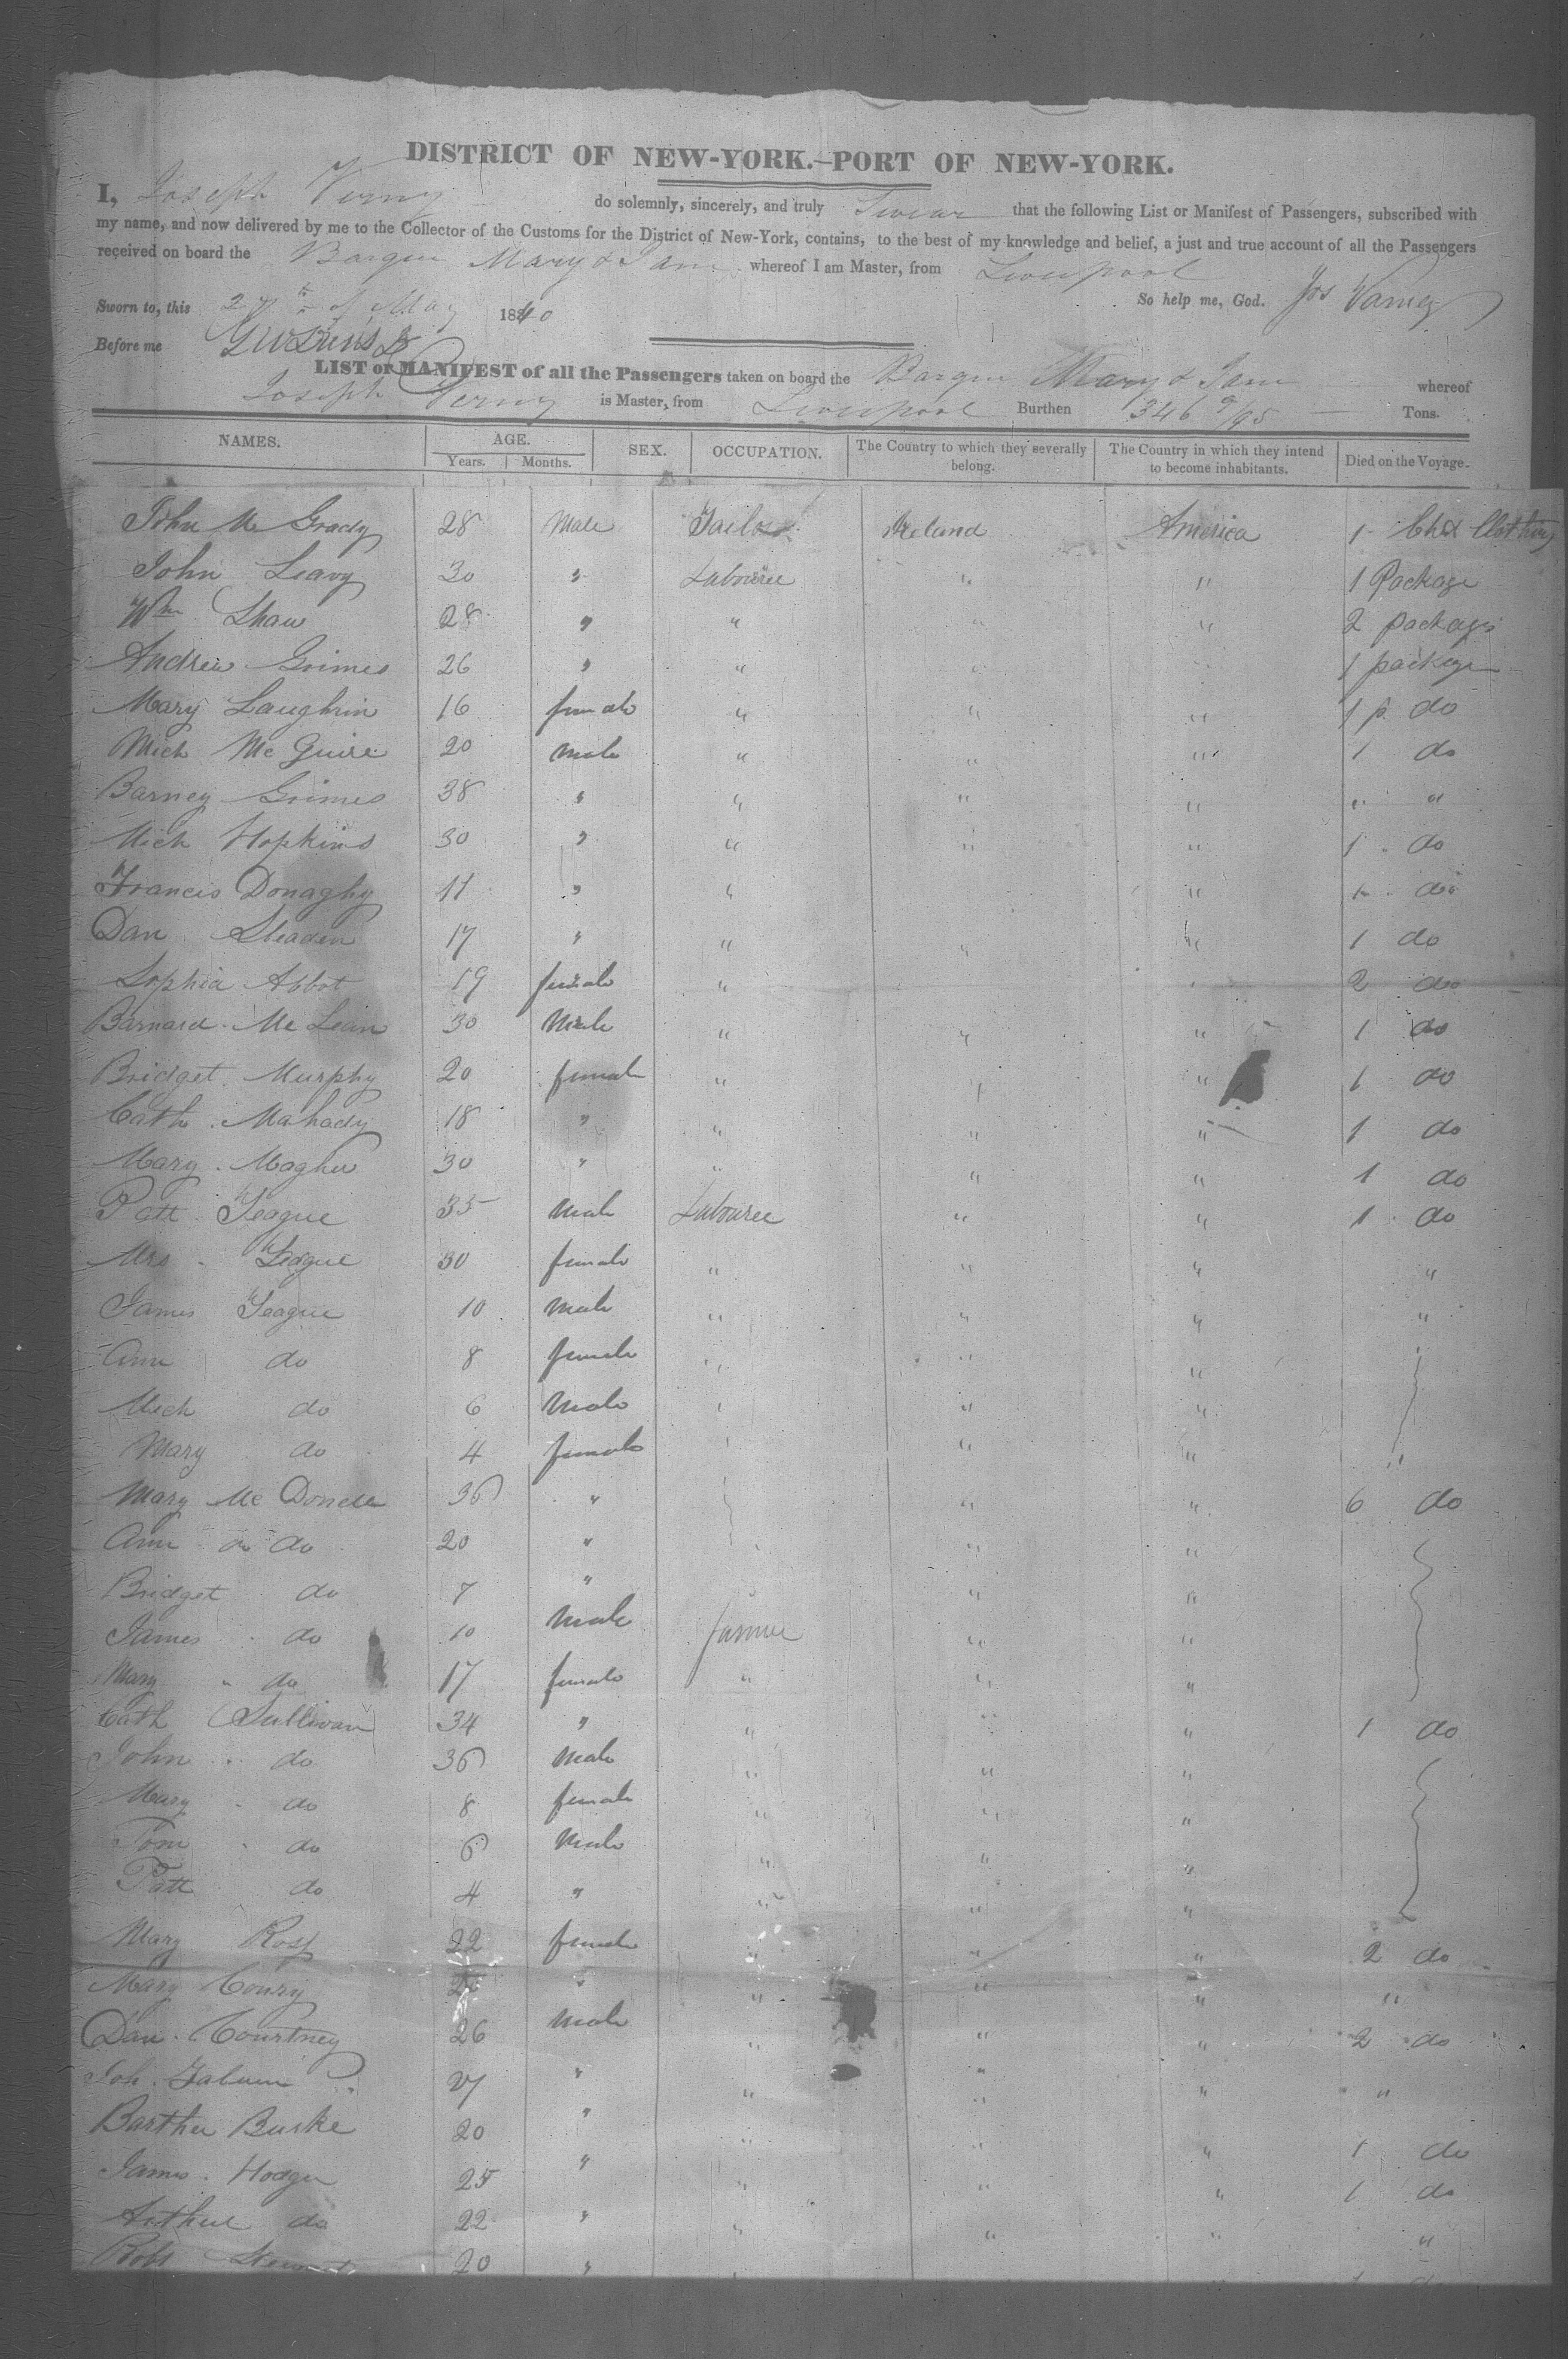 DISTRICT OF NEW-YORK.—PORT OF NEW-YORK.
I, Joseph Verny do solemnly, sincerely, and truly Swear that the following List or Manifest of Passengers, subscribed with
my name, and now delivered by me to the Collector of the Customs for the District of New-York, contains, to the best of my knowledge and belief, a just and true account of all the Passengers
received on board the Barque Mary & Jane whereof I am Master, from Liverpool
So help me, God. Jos Varney
Sworn to, this 27th of May 1840
Before me
LIST or MANIFEST of all the Passengers taken on board the Barque Mary & Jane whereof
Joseph Verny is Master, from Liverpool Burthen 346 9/95 Tons.
NAMES. AGE. SEX. OCCUPATION. The Country to which they severally belong. The Country in which they intend to become inhabitants. Died on the Voyage.
Years. Months.
John Mc Grady 28 Male Tailor Ireland America 1 Chst Clothing
John Leavy 30 " Labourer " " 1 Package
Wm Shaw 28 " " " " 2 packages
Andrew Grimes 26 " " " 1 package
Mary Laughrin 16 female " " " 1 p. do
Mich Mc Guire 20 male " " " 1 do
Barney Grimes 38 " " " " " "
Mich Hopkins 30 " " " " 1 do
Francis Donaghy 17 " " " 1 do
Dan 17 " " " " 1 do
Sophia Abbot 19 female " " 2 do
Barnard Mc Lean 30 Male " " " 1 do
Bridget Murphy 20 female " " " 1 do
Cath Mahady 18 " " " " 1 do
Mary Magher 30 " " " " 1 do
Patt Teague 35 male Labourer " " 1 do
Mrs Teague 30 female " " " "
James Teague 10 male " " " "
Ann do 8 female " " " "
Mich do 6 male " " "
Mary do 4 female " " " "
Mary Mc Donell 36 " " " 6 do
Ann do do 20 " " "
Bridget do 7 " " "
James do 10 male farmer " "
Mary " do 17 female " " "
Cath Sullivan 34 " " " " 1 do
John do 36 male " " "
Mary do 8 female " " "
Tom do 6 male " " "
Patt do 4 " " " "
Mary Ross 22 female " " " 2 do
Mary Conry " " " " "
Dan Courtney 26 male " " " 2 do
Joh 27 " " " " "
Barther Burke 20 " " " " 1 do
James Hodge 25 " " " " 1 do
Arthur do 22 " " " " "
Robt Stewart 20 "